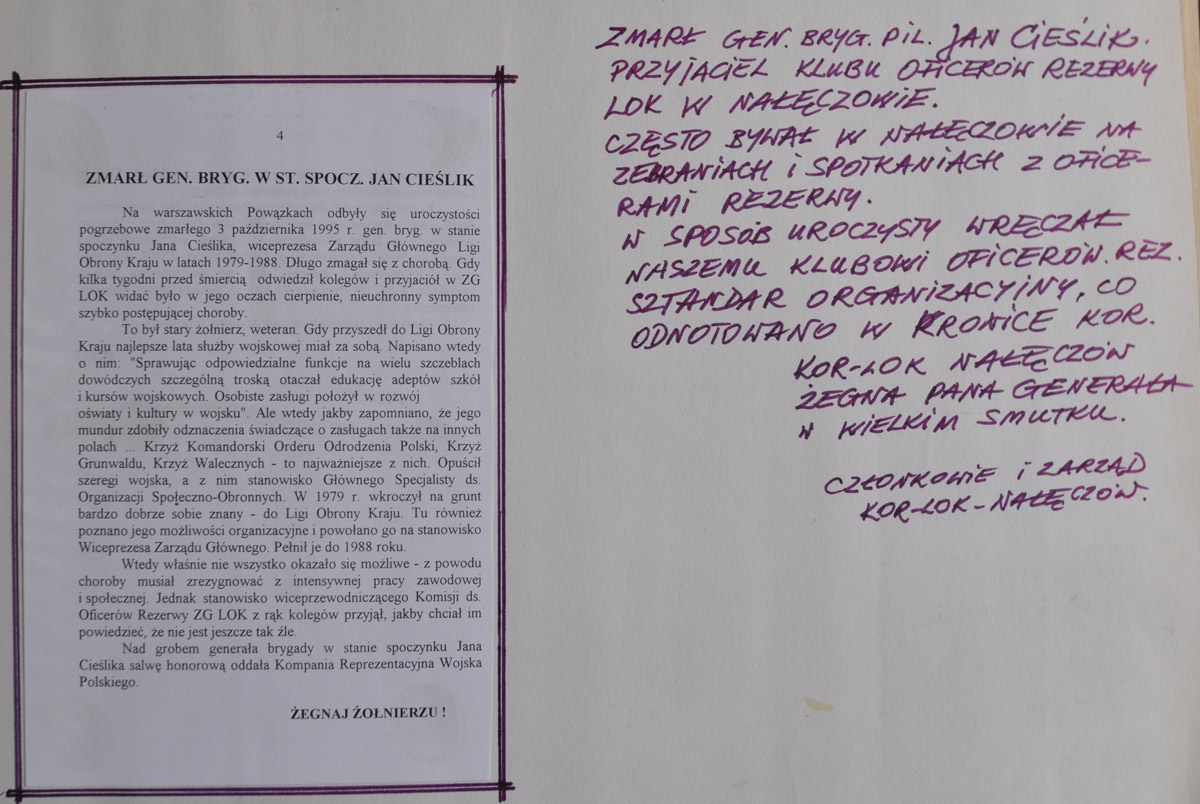 4
ZMARŁ GEN. BRYG. W ST. SPOCZ. JAN CIEŚLIK
Na warszawskich Powązkach odbyły się uroczystości
pogrzebowe zmarłego 3 października 1995 r. gen. bryg. w stanie
spoczynku Jana Cieślika, wiceprezesa Zarządu Głównego Ligi
Obrony Kraju w latach 1979-1988. Długo zmagał się z chorobą. Gdy
kilka tygodni przed śmiercią odwiedził kolegów i przyjaciół w ZG
LOK widać było w jego oczach cierpienie, nieuchronny symptom
szybko postępującej choroby.
To był stary żołnierz, weteran. Gdy przyszedł do Ligi Obrony
Kraju najlepsze lata służby wojskowej miał za sobą. Napisano wtedy
o nim: "Sprawując odpowiedzialne funkcje na wielu szczeblach
dowódczych szczególną troską otaczał edukację adeptów szkół
i kursów wojskowych. Osobiste zasługi położył w rozwój
oświaty i kultury w wojsku". Ale wtedy jakby zapomniano, że jego
mundur zdobiły odznaczenia świadczące o zasługach także na innych
polach ... Krzyż Komandorski Orderu Odrodzenia Polski, Krzyż
Grunwaldu, Krzyż Walecznych - to najważniejsze z nich. Opuścił
szeregi wojska, a z nim stanowisko Głównego Specjalisty ds.
Organizacji Społeczno-Obronnych. W 1979 r. wkroczył na grunt
bardzo dobrze sobie znany - do Ligi Obrony Kraju. Tu również
poznano jego możliwości organizacyjne i powołano go na stanowisko
Wiceprezesa Zarządu Głównego. Pełnił je do 1988 roku.
Wtedy właśnie nie wszystko okazało się możliwe - z powodu
choroby musiał zrezygnować z intensywnej pracy zawodowej
i społecznej. Jednak stanowisko wiceprzewodniczącego Komisji ds.
Oficerów Rezerwy ZG LOK z rąk kolegów przyjął, jakby chciał im
powiedzieć, że nie jest jeszcze tak źle.
Nad grobem generała brygady w stanie spoczynku Jana
Cieślika salwę honorową oddała Kompania Reprezentacyjna Wojska
Polskiego.
ŻEGNAJ ŻOŁNIERZU !
ZMARŁ GEN. BRYG. PIL. JAN CIEŚLIK.
PRZYJACIEL KLUBU OFICERÓW REZERWY
LOK W NAŁĘCZOWIE.
CZĘSTO BYWAŁ W NAŁĘCZOWIE NA
ZEBRANIACH I SPOTKANIACH Z OFICE-
RAMI REZERWY.
W SPOSÓB UROCZYSTY WRĘCZAŁ
NASZEMU KLUBOWI OFICERÓW. REZ.
SZTANDAR ORGANIZACYJNY, CO
ODNOTOWANO W KRONICE KOR.
KOR-LOK NAŁĘCZÓW
ŻEGNA PANA GENERAŁA
W WIELKIM SMUTKU.
CZŁONKOWIE I ZARZĄD
KOR-LOK-NAŁĘCZÓW.